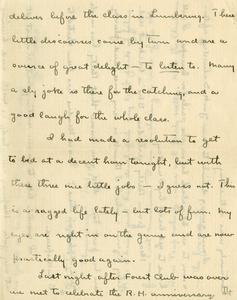 deliver before the class in Lumbering. These
little discourses come by turn and are a
source of great delight – to listen to. Many
a sly joke is there for the catching, and a
good laugh for the whole class.
I had made a resolution to get
to bed at a decent hour tonight, but with
these three nice little jobs – I guess not. This
is a ragged life lately – but lots of fun. My
eyes are right in on the game and are now
practically good again.
Last night after Forest Club was over
we met to celebrate the R.H. anniversary